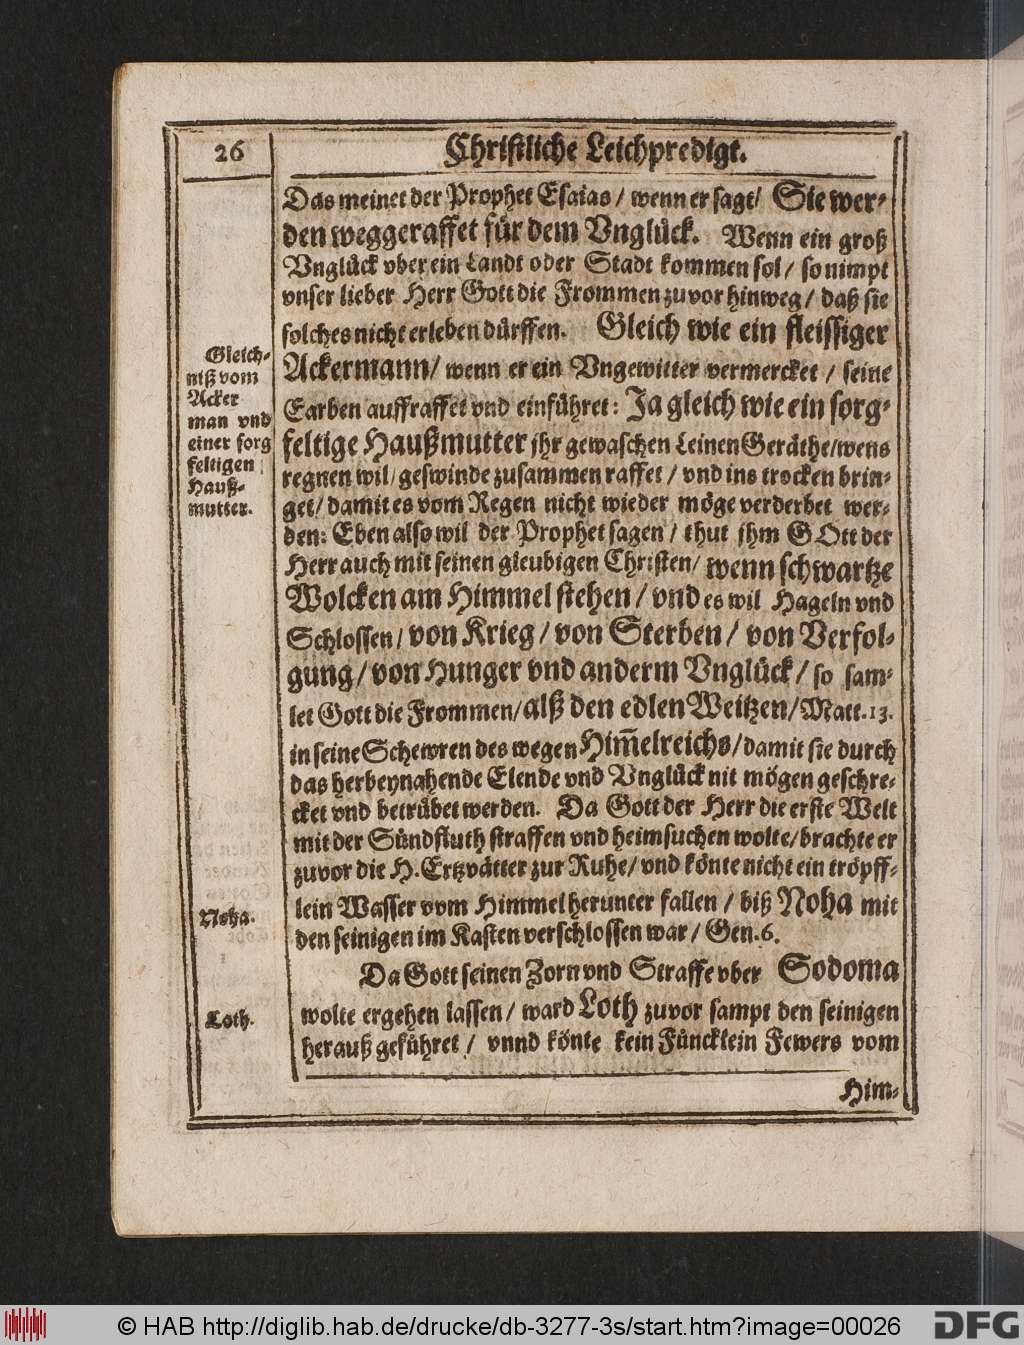 26
Christliche Leichpredigt.
Das meinet der Prophet Esaias / wenn er sagt / Sie wer-
den weggeraffet für dem Vnglück. Wenn ein groß
Vnglück vber ein Landt oder Stadt kommen sol / so nimpt
vnser lieber Herr Gott die Frommen zuvor hinweg / daß sie
solches nicht erleben dürffen. Gleich wie ein fleissiger
Ackermann / wenn er ein Vngewitter vermercket / seine
Earben auffraffet vnd einführet: Ja gleich wie ein sorg-
feltige Haußmutter jhr gewaschen Leinen Geräthe / wens
regnen wil / geswinde zusammen raffet / vnd ins trocken brin-
get / damit es vom Regen nicht wieder möge verderbet wer-
den: Eben also wil der Prophet sagen / thut jhm GOtt der
Herr auch mit seinen gleubigen Christen / wenn schwartze
Wolcken am Himmel stehen / vnd es wil Hageln vnd
Schlossen / von Krieg / von Sterben / von Verfol-
gung / von Hunger vnd anderm Vnglück / so sam-
let Gott die Frommen / alß den edlen Weitzen / Matt. 13.
in seine Schewren des wegen Him̃elreichs / damit sie durch
das herbeynahende Elende vnd Vnglück nit mögen geschre-
cket vnd betrübet werden. Da Gott der Herr die erste Welt
mit der Sündfluth straffen vnd heimsuchen wolte / brachte er
zuvor die H. Ertzvätter zur Ruhe / vnd könte nicht ein tröpff-
lein Wasser vom Himmel herunter fallen / biß Noha mit
den seinigen im Kasten verschlossen war / Gen. 6.
Da Gott seinen Zorn vnd Straffe vber Sodoma
wolte ergehen lassen / ward Loth zuvor sampt den seinigen
herauß geführet / vnnd könte kein Füncklein Fewers vom
Him-
Gleich-
niß vom
Acker
man vnd
einer sorg
feltigen
Hauß-
mutter.
Noha.
Loth.
© HAB http://diglib.hab.de/drucke/db-3277-3s/start.htm?image=00026
DFG